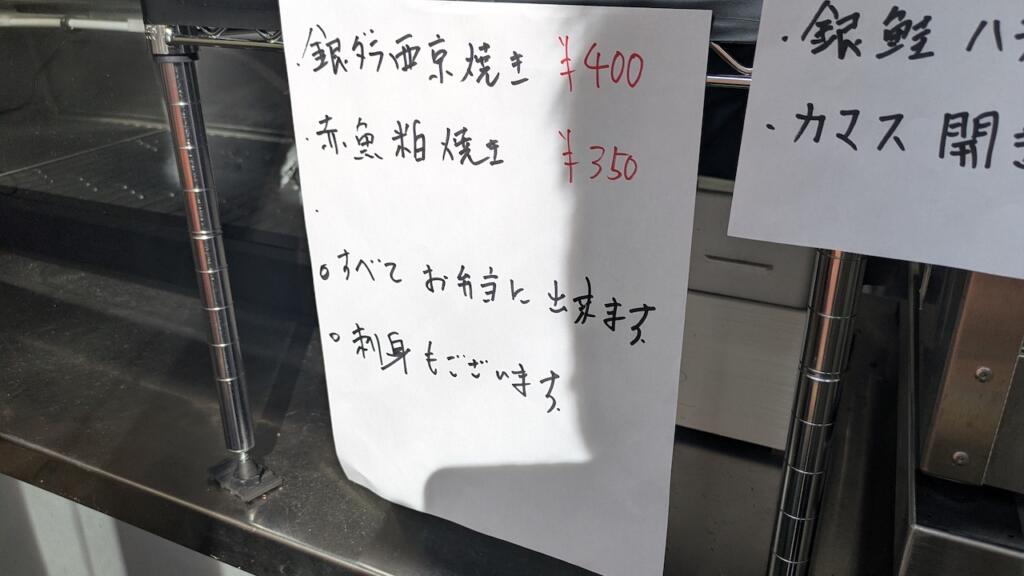 ・銀ダラ西京焼き ¥400
・赤魚粕焼き ¥350
・
○すべてお弁当に出来ます。
○刺身もございます。
・銀鮭ハ
・カマス開き